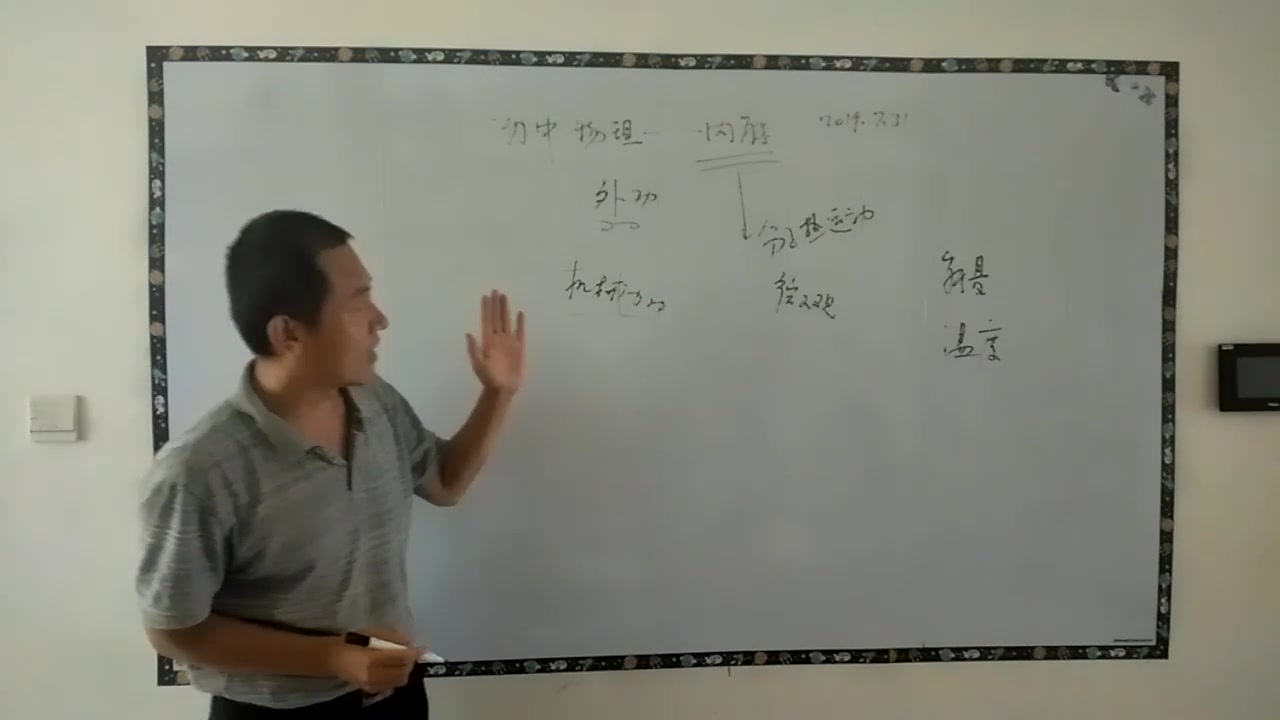 初中物理 — 内能 2019.7.31
外功
分子热运动
机械功
微观
温度